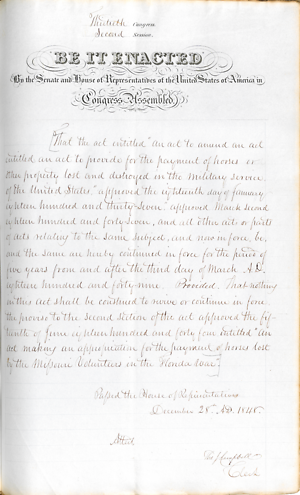 Thirtieth Congress
Second Session.
BE IT ENACTED
By the Senate and House of Representatives of the United States of America in
Congress Assembled,
That the act entitled "An act to amend an act
entitled an act to provide for the payment of horses or
other property lost and destroyed in the military service
of the United States," approved the eighteenth day of January
eighteen hundred and thirty seven, approved March second
eighteen hundred and forty seven, and all other acts or parts
of acts relating to the same subject, and now in force, be,
and the same are hereby continued in force for the period of
five years from and after the third day of March A.D.
eighteen hundred and forty-nine. Provided, That nothing
in this act shall be construed to revive or continue in force
the proviso to the second section of the act approved the fif-
teenth of June eighteen hundred and forty four entitled "An
act making an appropriation for the payment of horses lost
by the Missouri Volunteers in the Florida War."
Passed the House of Representatives
December 28. AD. 1848.
Attest
Tho J Campbell
Clerk